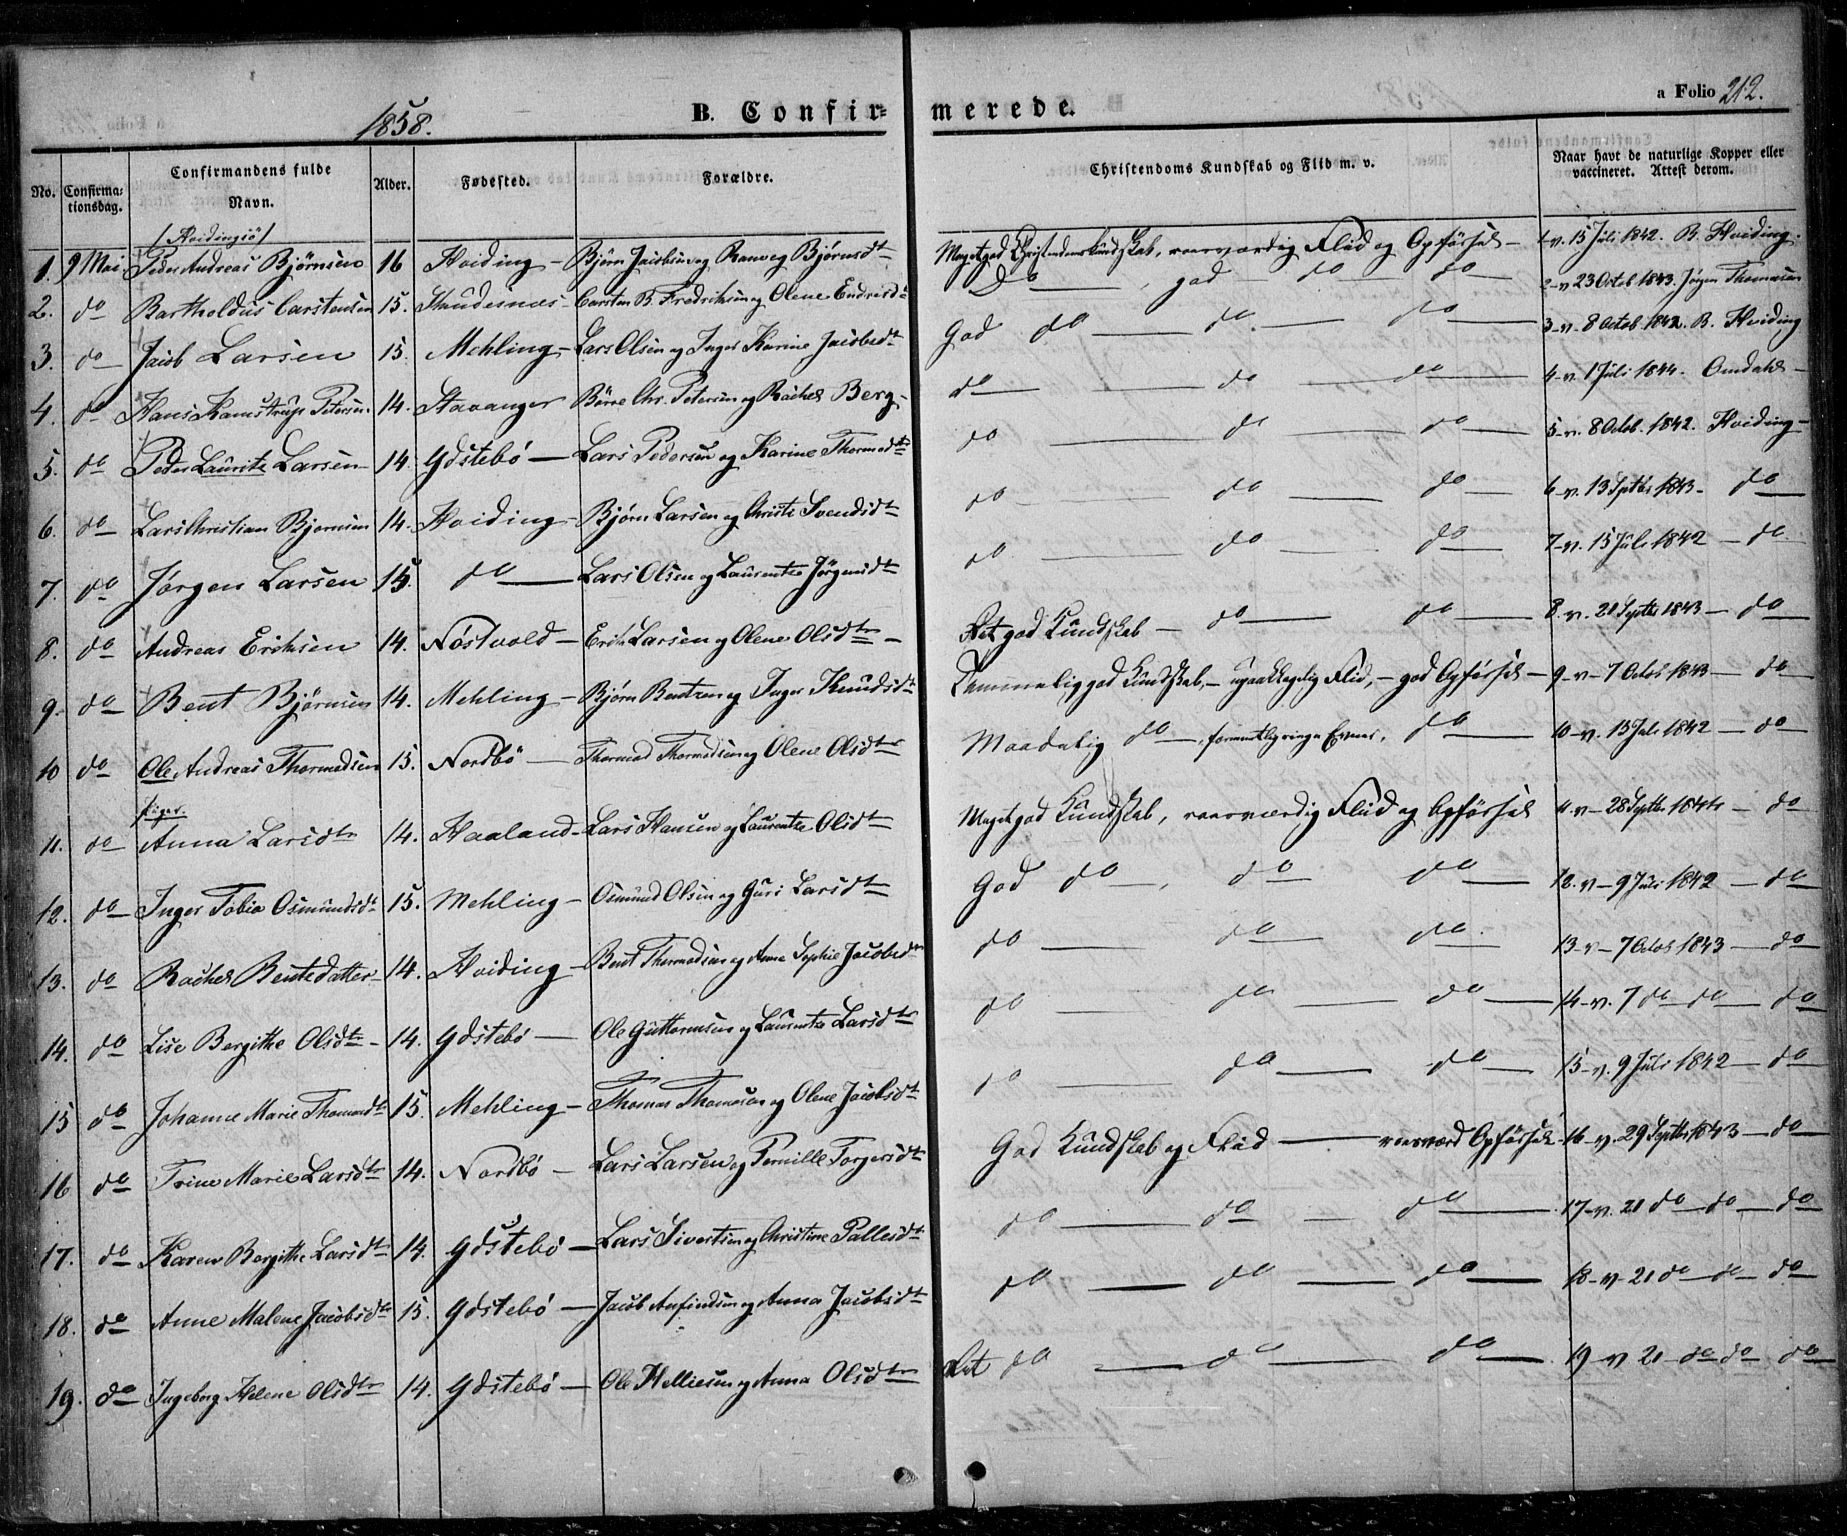 1858.
B. Confirmerede.
a Folio 212.
No.
Confirmationsdag.
Confirmandens fulde Navn.
Alder.
Fødested.
Forældre.
Christendoms Kundskab og Flid m. v.
Naar havt de naturlige Kopper eller vaccineret. Attest derom.
(Hvidingsö)
1. 9 Mai Peder Andreas Bjørnsen 16 Hviding - Björn Jacobsen og Ranveg Björnsdt Meget god Christendomskundskab, roesværdig Flid og Opförsel - 1-v. 15 Juli 1842. B. Hviding.
2. do Bartholdus Carstensen 15. Skudesnæs - Carsten B. Fredriksen og Olene Endresdt Do - , god - do - do - 2-v 23 Octob 1843. Jørgen Thomasen
3. do Jacob Larsen 15. Mehling - Lars Olsen og Inger Karine Jacobsdt God do - do - do - 3-v. 8 Octob. 1842. B. Hviding
4. do Hans Kamstrup Petersen 14. Stavanger Börre Chr. Petersen og Rachel Berg - do - do - do - 4-v. 1 Juli 1844. Omdahl -
5. do Peder Lauritz Larsen 14. Ydstebö - Lars Pedersen og Karine Thormodsdtr do - do - do - 5-v. 8 Octob. 1842. Hviding -
6. do Lars Christian Bjørnsen 14. Hviding - Bjørn Larsen og Christi Svendsdtr do - do - do - 6-v. 13 Septbr 1843 - do
7. do Jørgen Larsen 15. do - Lars Olsen og Laurentze Jörgensdtr do - do - do - 7-v. 15 Juli 1842 - do
8. do Andreas Erichsen 14. Nöstvold - Erich Larsen og Olene Olsdtr - Ret god Kundskab - do - do - 8. v. 21 Septbr 1843 - do
9. do Bent Bjørnsen 14. Mehling - Bjørn Bentsen og Inger Knudsdtr Temmelig god Kundskab, - upaaklagelig Flid, - god Opförsel - 9-v - 7 Octob 1843 - do
10 do Ole Andreas Thormodsen 15. Nordbö - Thormod Thormodsen og Olene Olsdtr Maadelig do -, formedelst ringe Evner, do - 10-v. 15 Juli 1842 - do
Piger.
11. do Anna Larsdtr 14. Haaland - Lars Hansen og Laurentze Olsdtr Meget god Kundskab, roesværdig Flid og Opförsel 11-v - 28 Septbr 1844 - do
12. do Inger Tobia Osmundsdt 15. Mehling - Osmund Olsen og Guri Larsdtr God do -, do - do - 12. v - 9 Juli 1842 - do
13. do Rachel Bentsdatter 14. Hviding - Bent Thormodsen og Anne Sophie Jacobsdtr do - do - do. 13 - v - 7 Octob 1843 - do
14. do Lise Bergithe Olsdtr - 14. Ydstebö - Ole Guttormsen og Laurentze Larsdtr do - do - do - 14-v. 7 do do - do
15 do Johanne Marie Thomasdtr 15. Mehling - Thomas Thomasen og Olene Jacobsdtr do - do - do - 15-v. 9 Juli 1842 - do
16 do Trine Marie Larsdtr 14. Nordbö - Lars Larsen og Pernille Torgersdtr God Kundskab og Flid - roesværd Opförsel - 16-v. 29 Septbr 1843 - do
17. do Karen Bergithe Larsdtr 14. Ydstebö - Lars Sivertsen og Christine Pallesdtr do - do - do - 17-v. 21 do - do - do
18. do Anne Malene Jacobsdtr 15. Ydstebö - Jacob Anfindsen og Anna Jacobsdtr do - do - do - 18-v-21 do - do - do
19. do Ingeborg Helene Olsdtr 14. Ydstebö - Ole Helliesen og Anna Olsdtr Ret do - do - do - 19-v 21 - do do - do